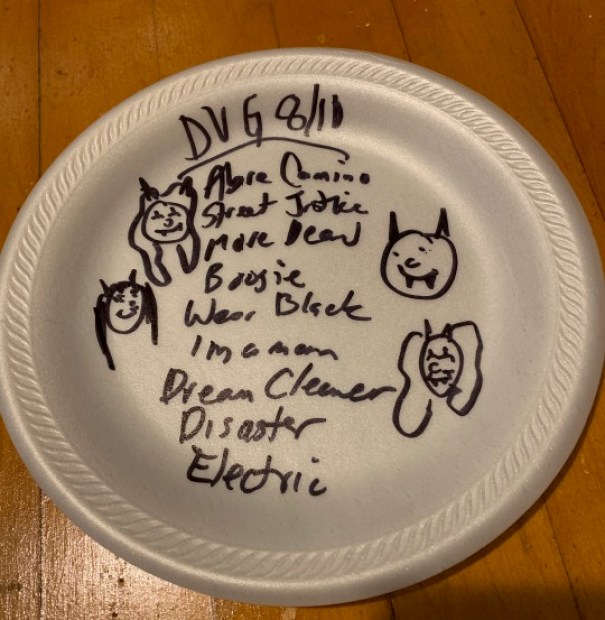 DVG 8/11
Abre Camino
Street Justice
More Dead
Boogie
Wear Black
I'm a man
Dream Cleaner
Disaster
Electric